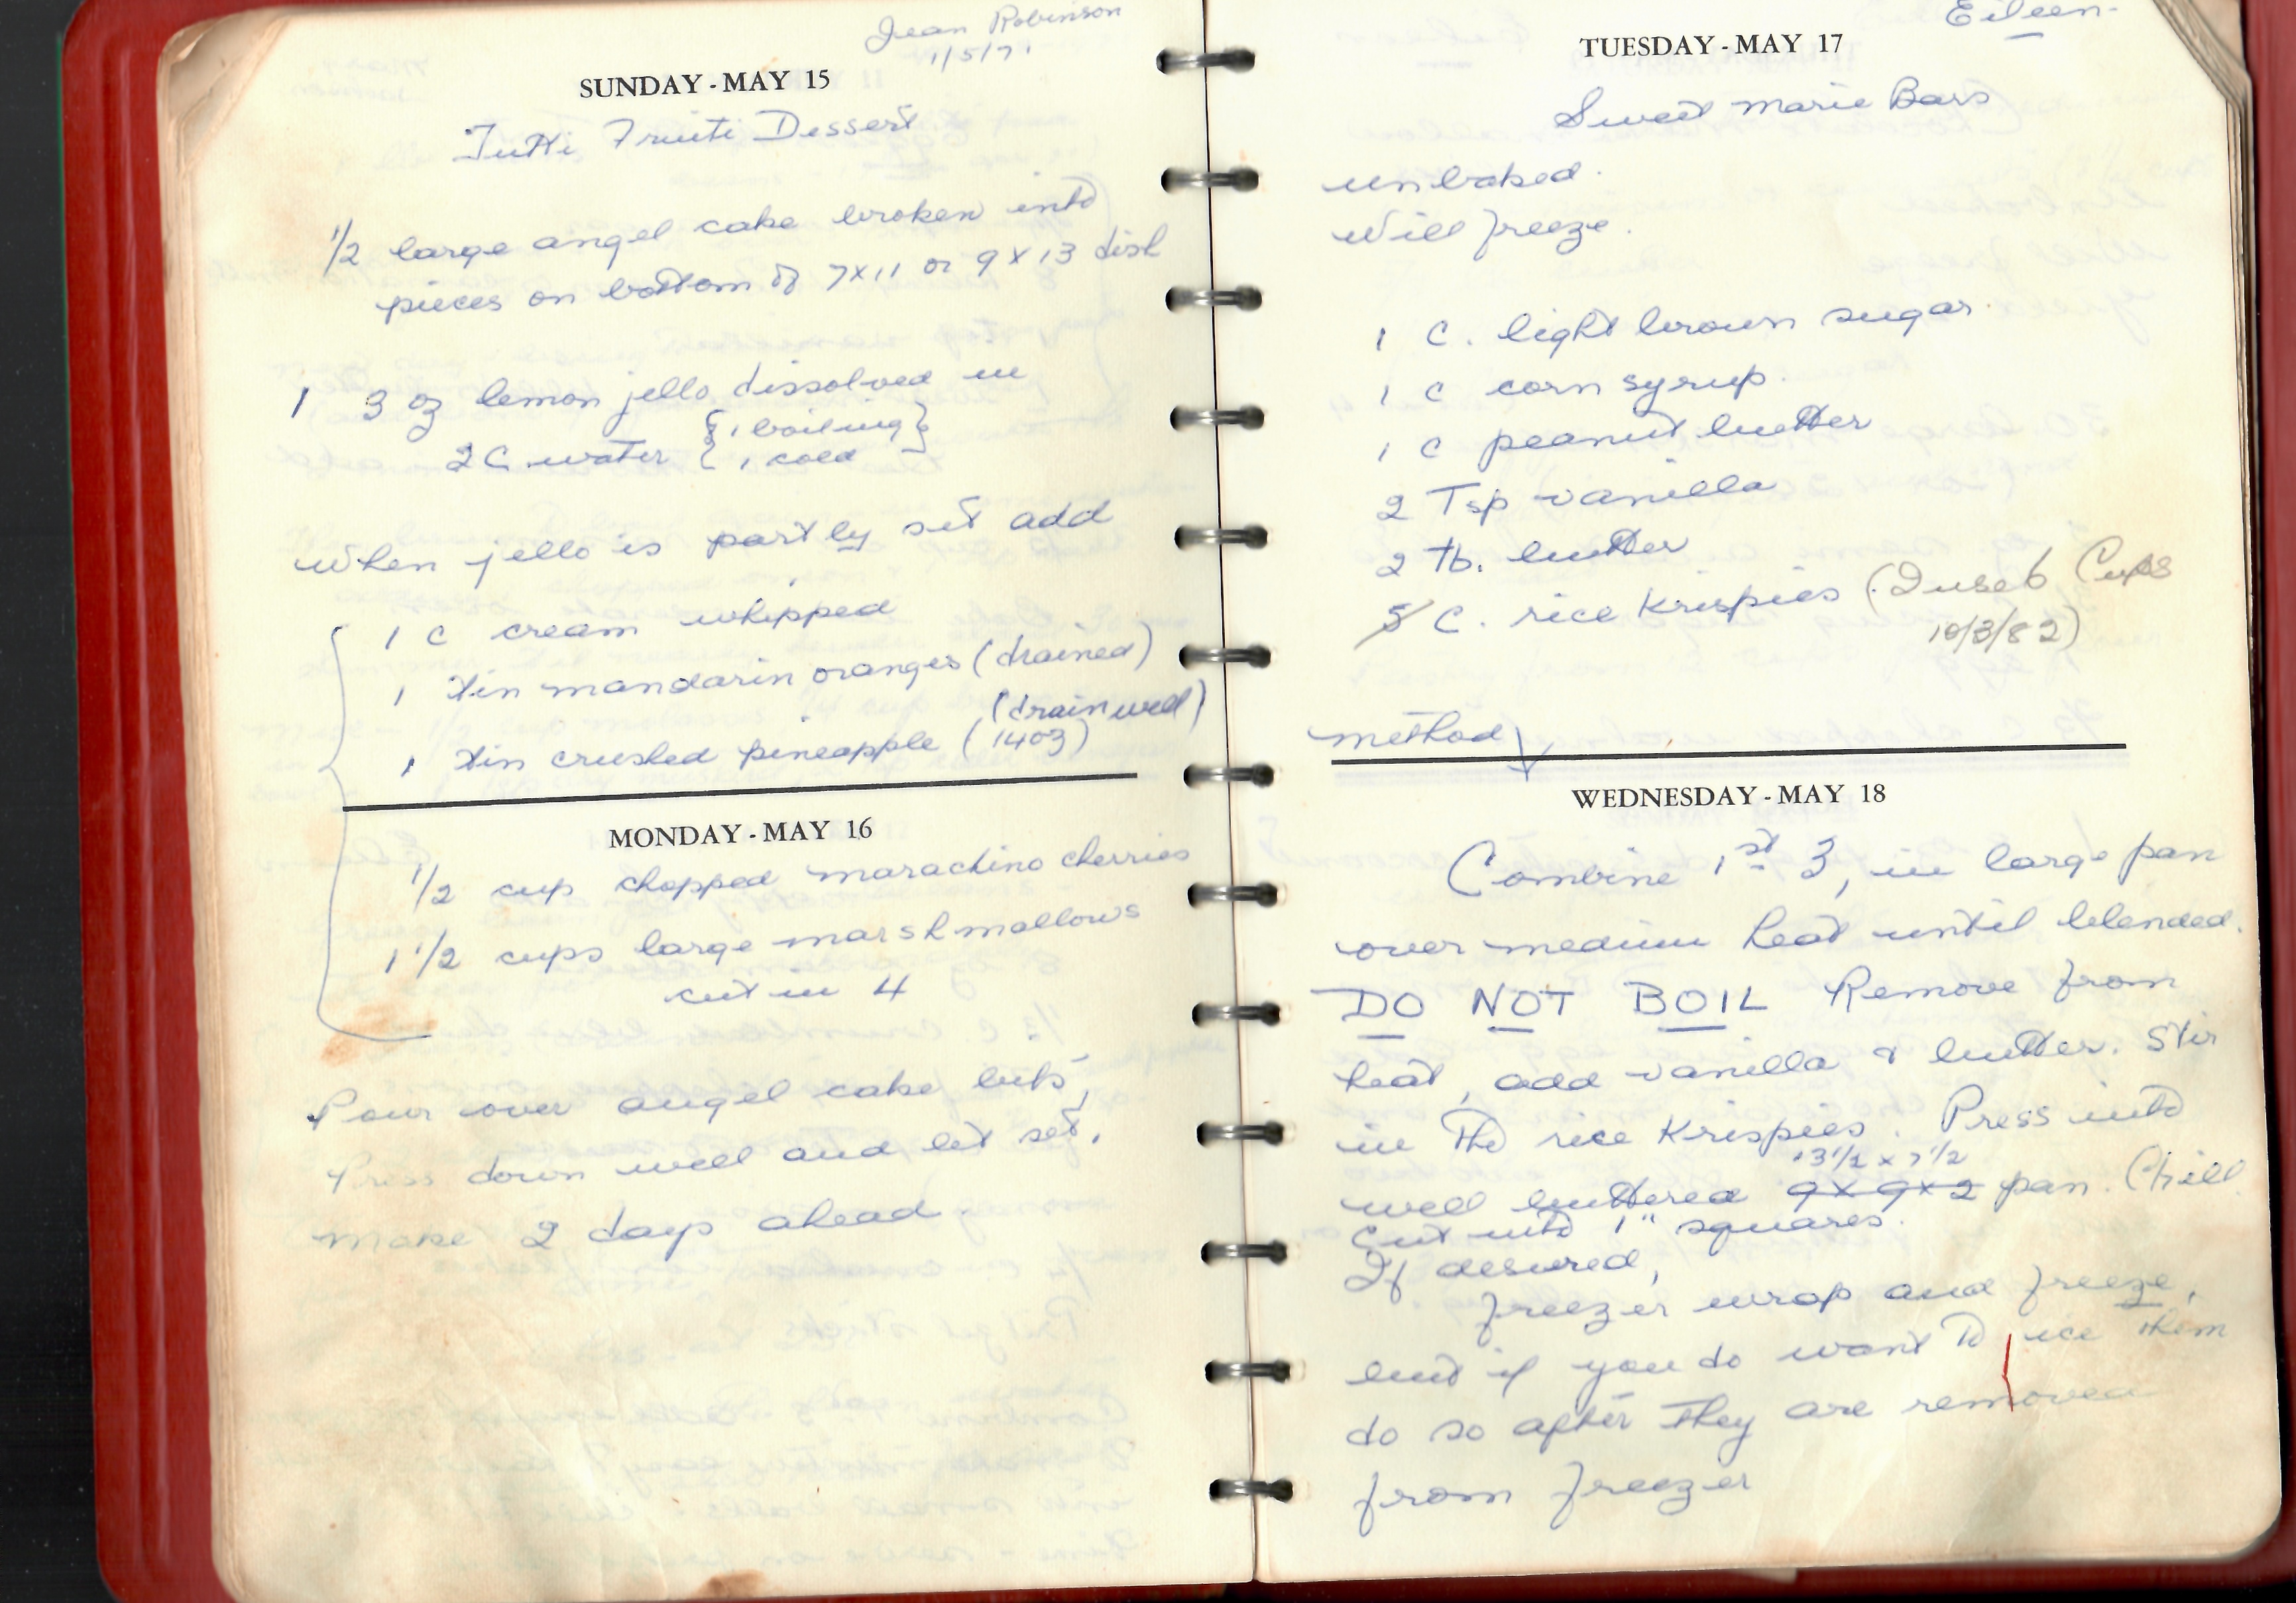 Jean Robinson
1/5/71
SUNDAY - MAY 15
Tutti Fruiti Dessert
1/2 large angel cake broken into
pieces on bottom of 7x11 or 9x13 dish
1 3 oz lemon jello dissolved in
2C water { 1 boiling }
{ 1 cold
when jello is partly set add
1 c cream whipped
1 tin mandarin oranges (drained)
(drain well)
1 tin crushed pineapple (14oz)
MONDAY - MAY 16
1/2 cup chopped marachino cherries
1 1/2 cups large marshmallows
cut in 4
Pour over angel cake bits,
Press down well and let set.
make 2 days ahead.
Eileen.
TUESDAY - MAY 17
Sweet Marie Bars
unbaked.
Will freeze.
1 C. light brown sugar.
1 C corn syrup.
1 C peanut butter
2 Tsp vanilla
2 tb. butter
5 C. rice Krispies (I use 6 Cups
10/3/82)
method ↓
WEDNESDAY - MAY 18
Combine 1st 3, in large pan
over medium heat until blended.
DO NOT BOIL Remove from
heat, add vanilla & butter. Stir
in the rice Krispies. Press into
13 1/2 x 7 1/2
well buttered 9x9x2 pan. Chill
Cut into 1" squares.
If desired,
freezer wrap and freeze,
but if you do want to ice them
do so after they are removed
from freezer